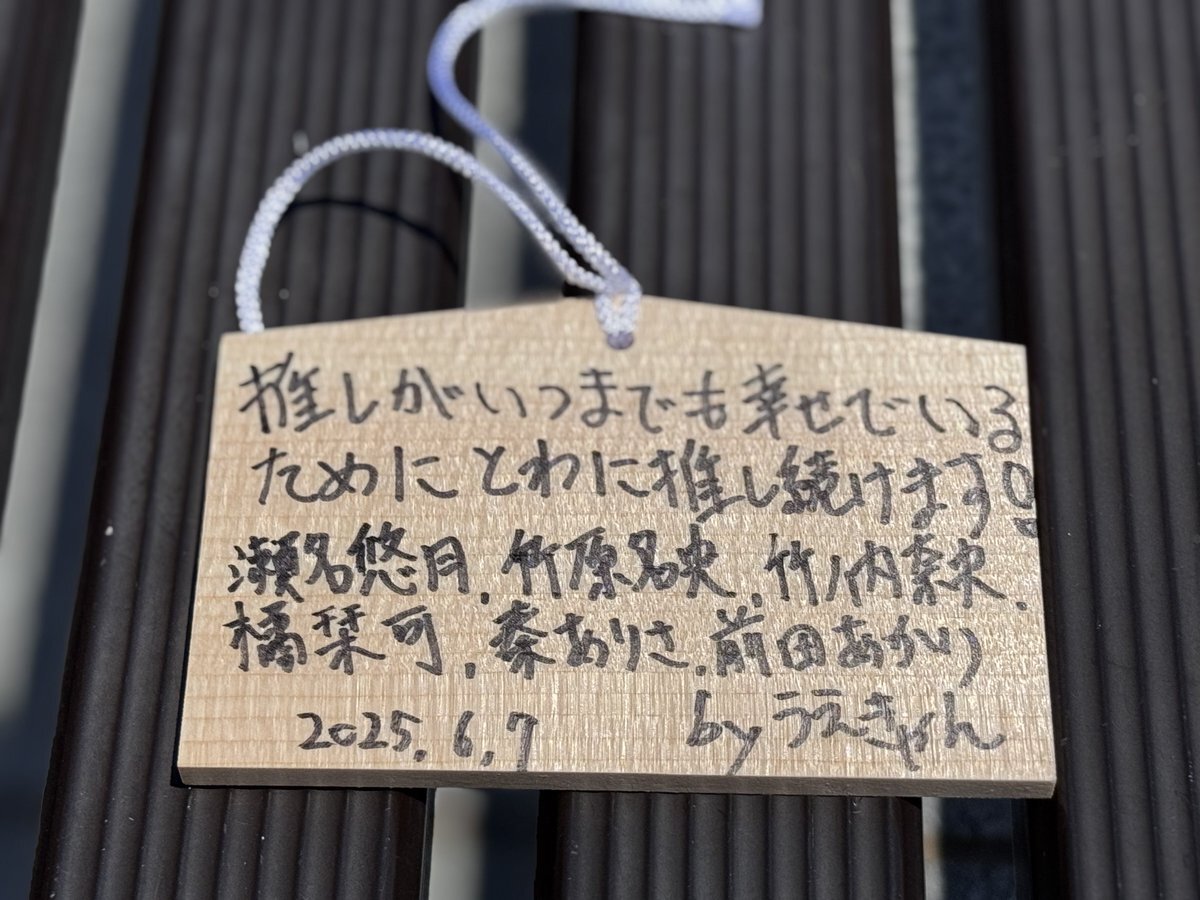 推しがいつまでも幸せでいる
ためにとわに推し続けます!!
瀬名悠月, 竹原名央, 竹ノ内素央,
橘栞可, 秦ありさ, 前田あかり
2025.6.7 byうえきゃん